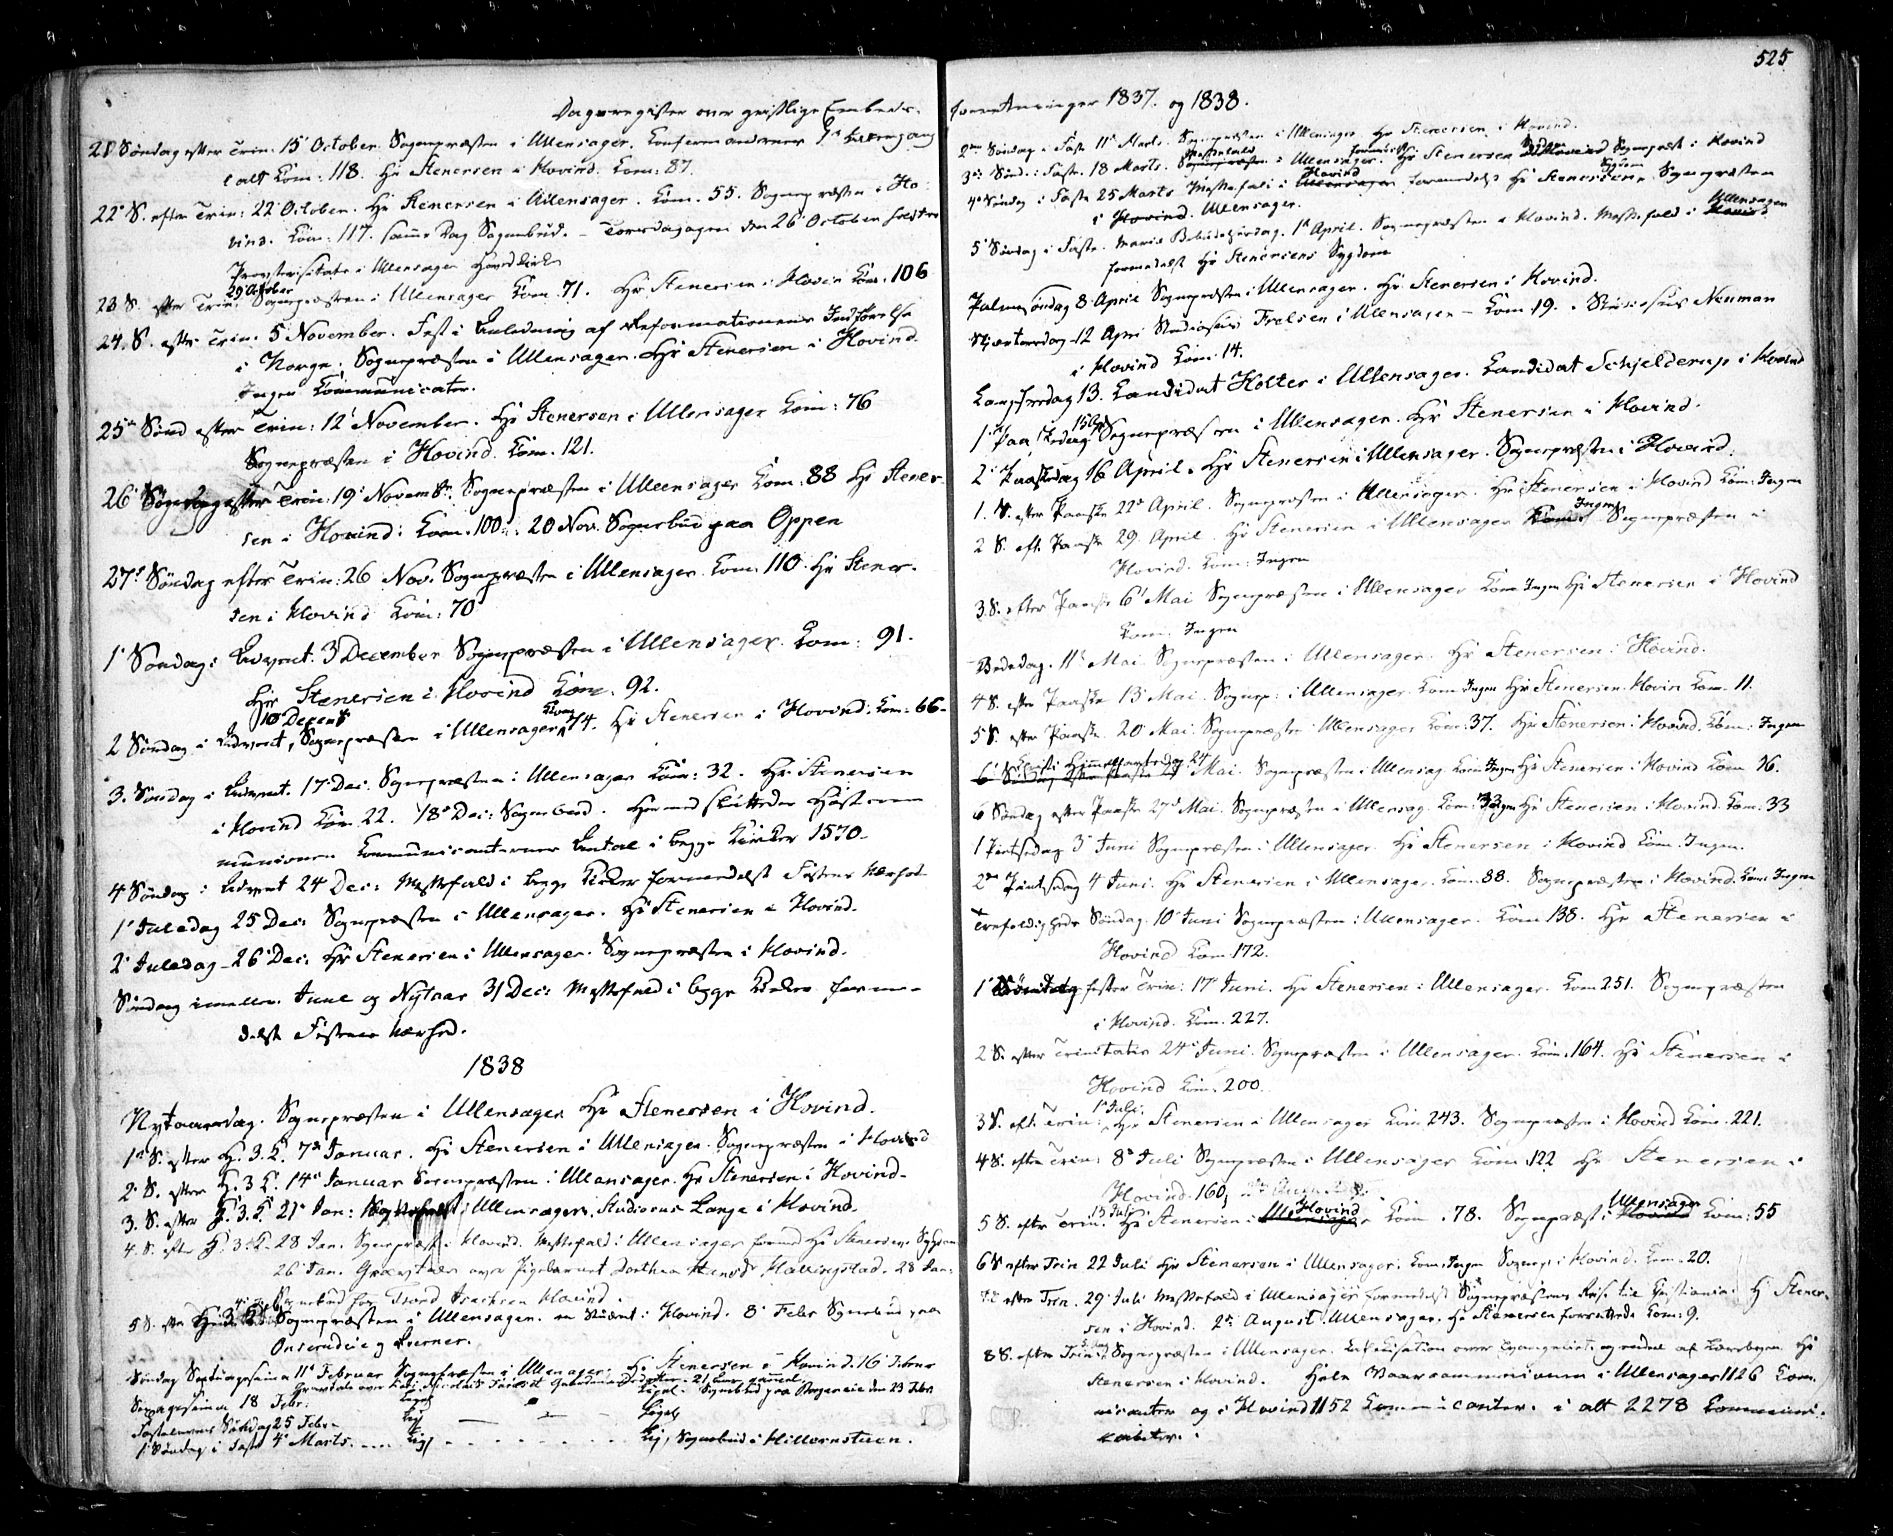 Dagsregister over geistlige Embeds-
21 Søndag efter Trin: 15 October. Sognepræsten i Ullensager. Confirmanderne 1ste Altergang
i alt Com: 118. Hr Stenersen i Hovind. Com: 87.
22de S. efter Trin: 22 October. Hr Stenersen i Ullensager. Com. 55. Sognepræsten i Ho-
vind. Com: 117. samme Dag Sognebud. – Torsdagagen den 26 October holdtes
Provstevisitats i Ullensager Hovedkirke
29 October
23 S. efter Trin: Sognepræsten i Ullensager Com. 71. Hr Stenersen i Hovin Com. 106
24. S. efter Trin: 5 November. Fest i Anledning af Reformationens Indførelse
i Norge. Sognepræsten i Ullensager. Hr Stenersen i Hovind.
Ingen Communicanter.
25de Sønd efter Trin: 12 November. Hr Stenersen i Ullensager Com: 76
Sognepræsten i Hovind. Com. 121.
26 Søndag efter Trin: 19 Novembr. Sognepræsten i Ullensager Com: 88 Hr Stener-
sen i Hovind: Com. 100. 20 Nov. Sognebud paa Oppen
27de Søndag efter Trin: 26 Nov. Sognepræsten i Ullensager. Com. 110. Hr Stener-
sen i Hovind Com: 70
1 Søndag i Advent. 3 December Sognepræsten i Ullensager. Com: 91.
Hr Stenersen i Hovind Com. 92.
10 Decembr
2 Søndag i Advent, Sognepræsten i Ullensager, Com 74. Hr Stenersen i Hovind. Com: 66-
3. Søndag i Advent. 17 Dec. Sognepræsten i Ullensager Com: 32. Hr Stenersen
i Hovind Com 22. 18 Dec: Sognebud. Hermed sluttedes Høstcom-
munionen Communicanternes Antal i begge Kirker 1570.
4 Søndag i Advent 24 Dec: Messefald i begge Kirker formedelst Festens Nærhed
1 Juledag 25 Dec: Sognepræsten i Ullensager. Hr Stenersen i Hovind.
2 Juledag 26 Dec: Hr Stenersen i Ullensager. Sognepræsten i Hovind.
Søndag imellem Juul og Nytaar 31 Dec: Messefald i begge Kirker forme-
delst Festens Nærhed.
1838
Nytaarsdag. Sognepræsten i Ullensager Hr Stenersen i Hovind.
1ste S. efter H. 3. K. 7de Januar. Hr Stenersen i Ullensager. Sognepræsten i Hovind
2 S. efter H. 3 K. 14 Januar Sognepræsten i Ullensager. Hr Stenersen i Hovind.
3. S. efter H. 3. K. 21 Jan: i Ullensager, Studiosus Lange i Hovind.
4. S. efter H. 3. K. 28 Jan. Sognepræst i Hovind. Messefald i Ullensager formd Hr Stenersens Sygdom
26 Jan. Gravtale over Pigebarnet Dorthea Hansdr Hallingstad. 28 Jan:
Sognebud hos Isachsen Hovind.
5 S. efter H. 3 K. Sognepræsten i Ullensager. en Student i Hovind. 8 Febr Sognebud paa
og Kverner.
Søndag Septuagesima 11 Februar Sognepræsten i Ullensager. Hr Stenersen i Hovind. 16 Febr
Sexagesima 18 Febr. ligesaa. Ligel. Sognebud paa den 23 Febr
Fastelavns Søndag 25 Febr. lig. – – Ligel.
1 Søndag i Faste 4 Marts. .... Lig. . . . . . Lig, Sognebud i Hillernstuen.
525
forretninger 1837. og 1838.
2den Søndag i Faste 11 Marts. Sognepræsten i Ullensager. Hr Stenersen i Hovind.
3die Sønd. i Faste. 18 Marts. Messefald i Ullensager. formedelst Hr Stenersens Sygdom Sognepræst i Hovind
4de Søndag i Faste 25 Marts Messefald i Hovind formedelst Hr Stenersens Sygdom Sognepræsten
i Hovind. Ullensager.
5 Søndag i Faste. Mariæ Bebudelsesdag. 1ste April. Sognepræsten i Hovind. Messefald i Ullensager
formedelst Hr Stenersens Sygdom
Palmesøndag 8 April Sognepræsten i Ullensager. Hr Stenersen i Hovind.
Skjærtorsdag 12 April Studiosus Frelsen i Ullensager – Com. 19. Studiosus Neuman
i Hovind Com: 14.
Langfredag 13. Candidat Holter i Ullensager. Candidat Schjelderup i Hovind
1ste Paaskedag 15 Apr Sognepræsten i Ullensager. Hr Stenersen i Hovind.
2 Paaskedag 16 April. Hr Stenersen i Ullensager. Sognepræsten i Hovind.
1. S. efter Paaske 22de April. Sognepræsten i Ullensager. Hr Stenersen i Hovind Com: Ingen
2 S. eft. Paaske 29 April. Hr Stenersen i Ullensager Com: Ingen Sognepræsten i
Hovind. Com: Ingen
3 S. efter Paaske 6 Mai Sognepræsten i Ullensager Com Ingen Hr Stenersen i Hovind
Com: Ingen
Bededag. 11 Mai. Sognepræsten i Ullensager. Hr Stenersen i Hovind.
4 S. efter Paaske 13 Mai. Sognep: i Ullensager. Com Ingen Hr Stenersen. Hovin Com. 11.
5 S. efter Paaske. 20 Mai. Sognepræsten i Ullensager Com: 37. Hr Stenersen i Hovind. Com: Ingen
Christi Himmelfartsdag 24
Mai. Sognepræsten i Ullensag. Com Ingen Hr Stenersen i Hovind Com 16.
6 Søndag efter Paaske 27 Mai. Sognepræsten i Ullensag. Com: Ingen Hr Stenersen i Hovind. Com: 33
1 Pintsedag 3 Juni Sognepræsten i Ullensager. Hr Stenersen i Hovind Com. Ingen.
2den Pintsedag 4 Juni. Hr Stenersen i Ullensager. Com. 88. Sognepræsten i Hovind. Com: Ingen
Trefoldigheds Søndag. 10 Juni Sognepræsten i Ullensager. Com 138. Hr Stenersen i
Hovind Com. 172.
1 Søndag efter Trin: 17 Juni. Hr Stenersen i Ullensager. Com 251. Sognepræsten
i Hovind. Com. 227.
2 S. efter Trinitatis 24 Juni. Sognepræsten i Ullensager. Com. 164. Hr Stenersen i
Hovind Com. 200.
1 Juli.
3 S. eft. Trin: Hr Stenersen i Ullensager Com 243. Sognepræsten i Hovind Com. 221.
4 S. efter Trin: 8 Juli Sognepræsten i Ullensager Com. 122 Hr Stenersen i
Hovind. 160,
15 Juli.
5 S. efter Trin. Hr Stenersen i Hovind Com. 78. Sognepræst i Ullensager Com: 55
6 S efter Trin 22 Juli Hr Stenersen i Ullensager. Com. Ingen Sognep. i Hovind. Com. 20.
efter Trin. 29 Juli Messefald i Ullensager formedelst Sognepræstens Reise til Christiania. Hr Stener-
sen i Hovind. 2den August. Ullensager. Hr Stenersen forrettede Com: 9.
8 S. efter Trin Sognepræsten i Ullensager. Catechisation over Evangeliet og endeel af Lærebogen Hr
Stenersen i Hovind. Hele Vaarcommunionen i Ullensager 1126 Com-
nicanter og i Hovind 1152 Communicanter. i alt 2278 Communi-
canter.